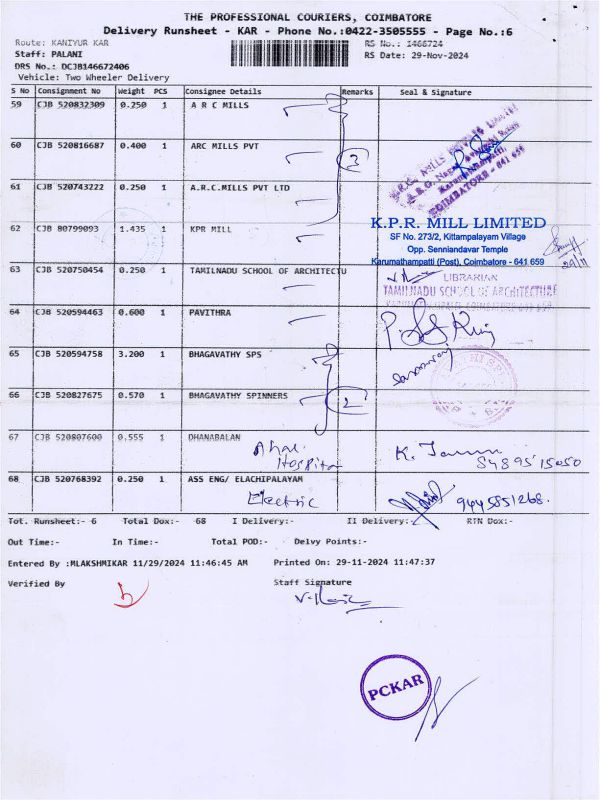 THE PROFESSIONAL COURIERS, COIMBATORE
Delivery Runsheet - KAR - Phone No.:0422-3505555 - Page No.:6
Route: KANIYUR KAR
RS No.: 1466724
Staff: PALANI
RS Date: 29-Nov-2024
DRS No.: DCJB146672406
Vehicle: Two Wheeler Delivery
S No Consignment No Weight PCS Consignee Details Remarks Seal & Signature
59 CJB 520832309 0.250 1 A R C MILLS
60 CJB 520816687 0.400 1 ARC MILLS PVT 3
COIMBATORE - 641 659
61 CJB 520743222 0.250 1 A.R.C.MILLS PVT LTD
62 CJB 80799093 1.435 1 KPR MILL
K.P.R. MILL LIMITED
SF No. 273/2, Kittampalayam Village
Opp. Senniandavar Temple
Karumathampatti (Post), Coimbatore - 641 659
29/11
63 CJB 520750454 0.250 1 TAMILNADU SCHOOL OF ARCHITECTU
LIBRARIAN
TAMILNADU SCHOOL OF ARCHITECTURE
64 CJB 520594463 0.600 1 PAVITHRA
65 CJB 520594758 3.200 1 BHAGAVATHY SPS
66 CJB 520827675 0.570 1 BHAGAVATHY SPINNERS 2
67 CJB 520807600 0.555 1 DHANABALAN
Hospital
68 CJB 520768392 0.250 1 ASS ENG/ ELACHIPALAYAM
Electric 9445851268.
Tot. Runsheet:- 6 Total Dox:- 68 I Delivery:- II Delivery:- RTN Dox:-
Out Time:- In Time:- Total POD:- Delvy Points:-
Entered By :MLAKSHMIKAR 11/29/2024 11:46:45 AM Printed On: 29-11-2024 11:47:37
Verified By Staff Signature
PCKAR